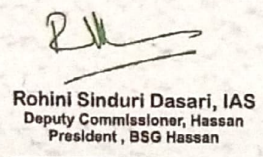 Rohini Sinduri Dasari, IAS
Deputy Commissioner, Hassan
President , BSG Hassan